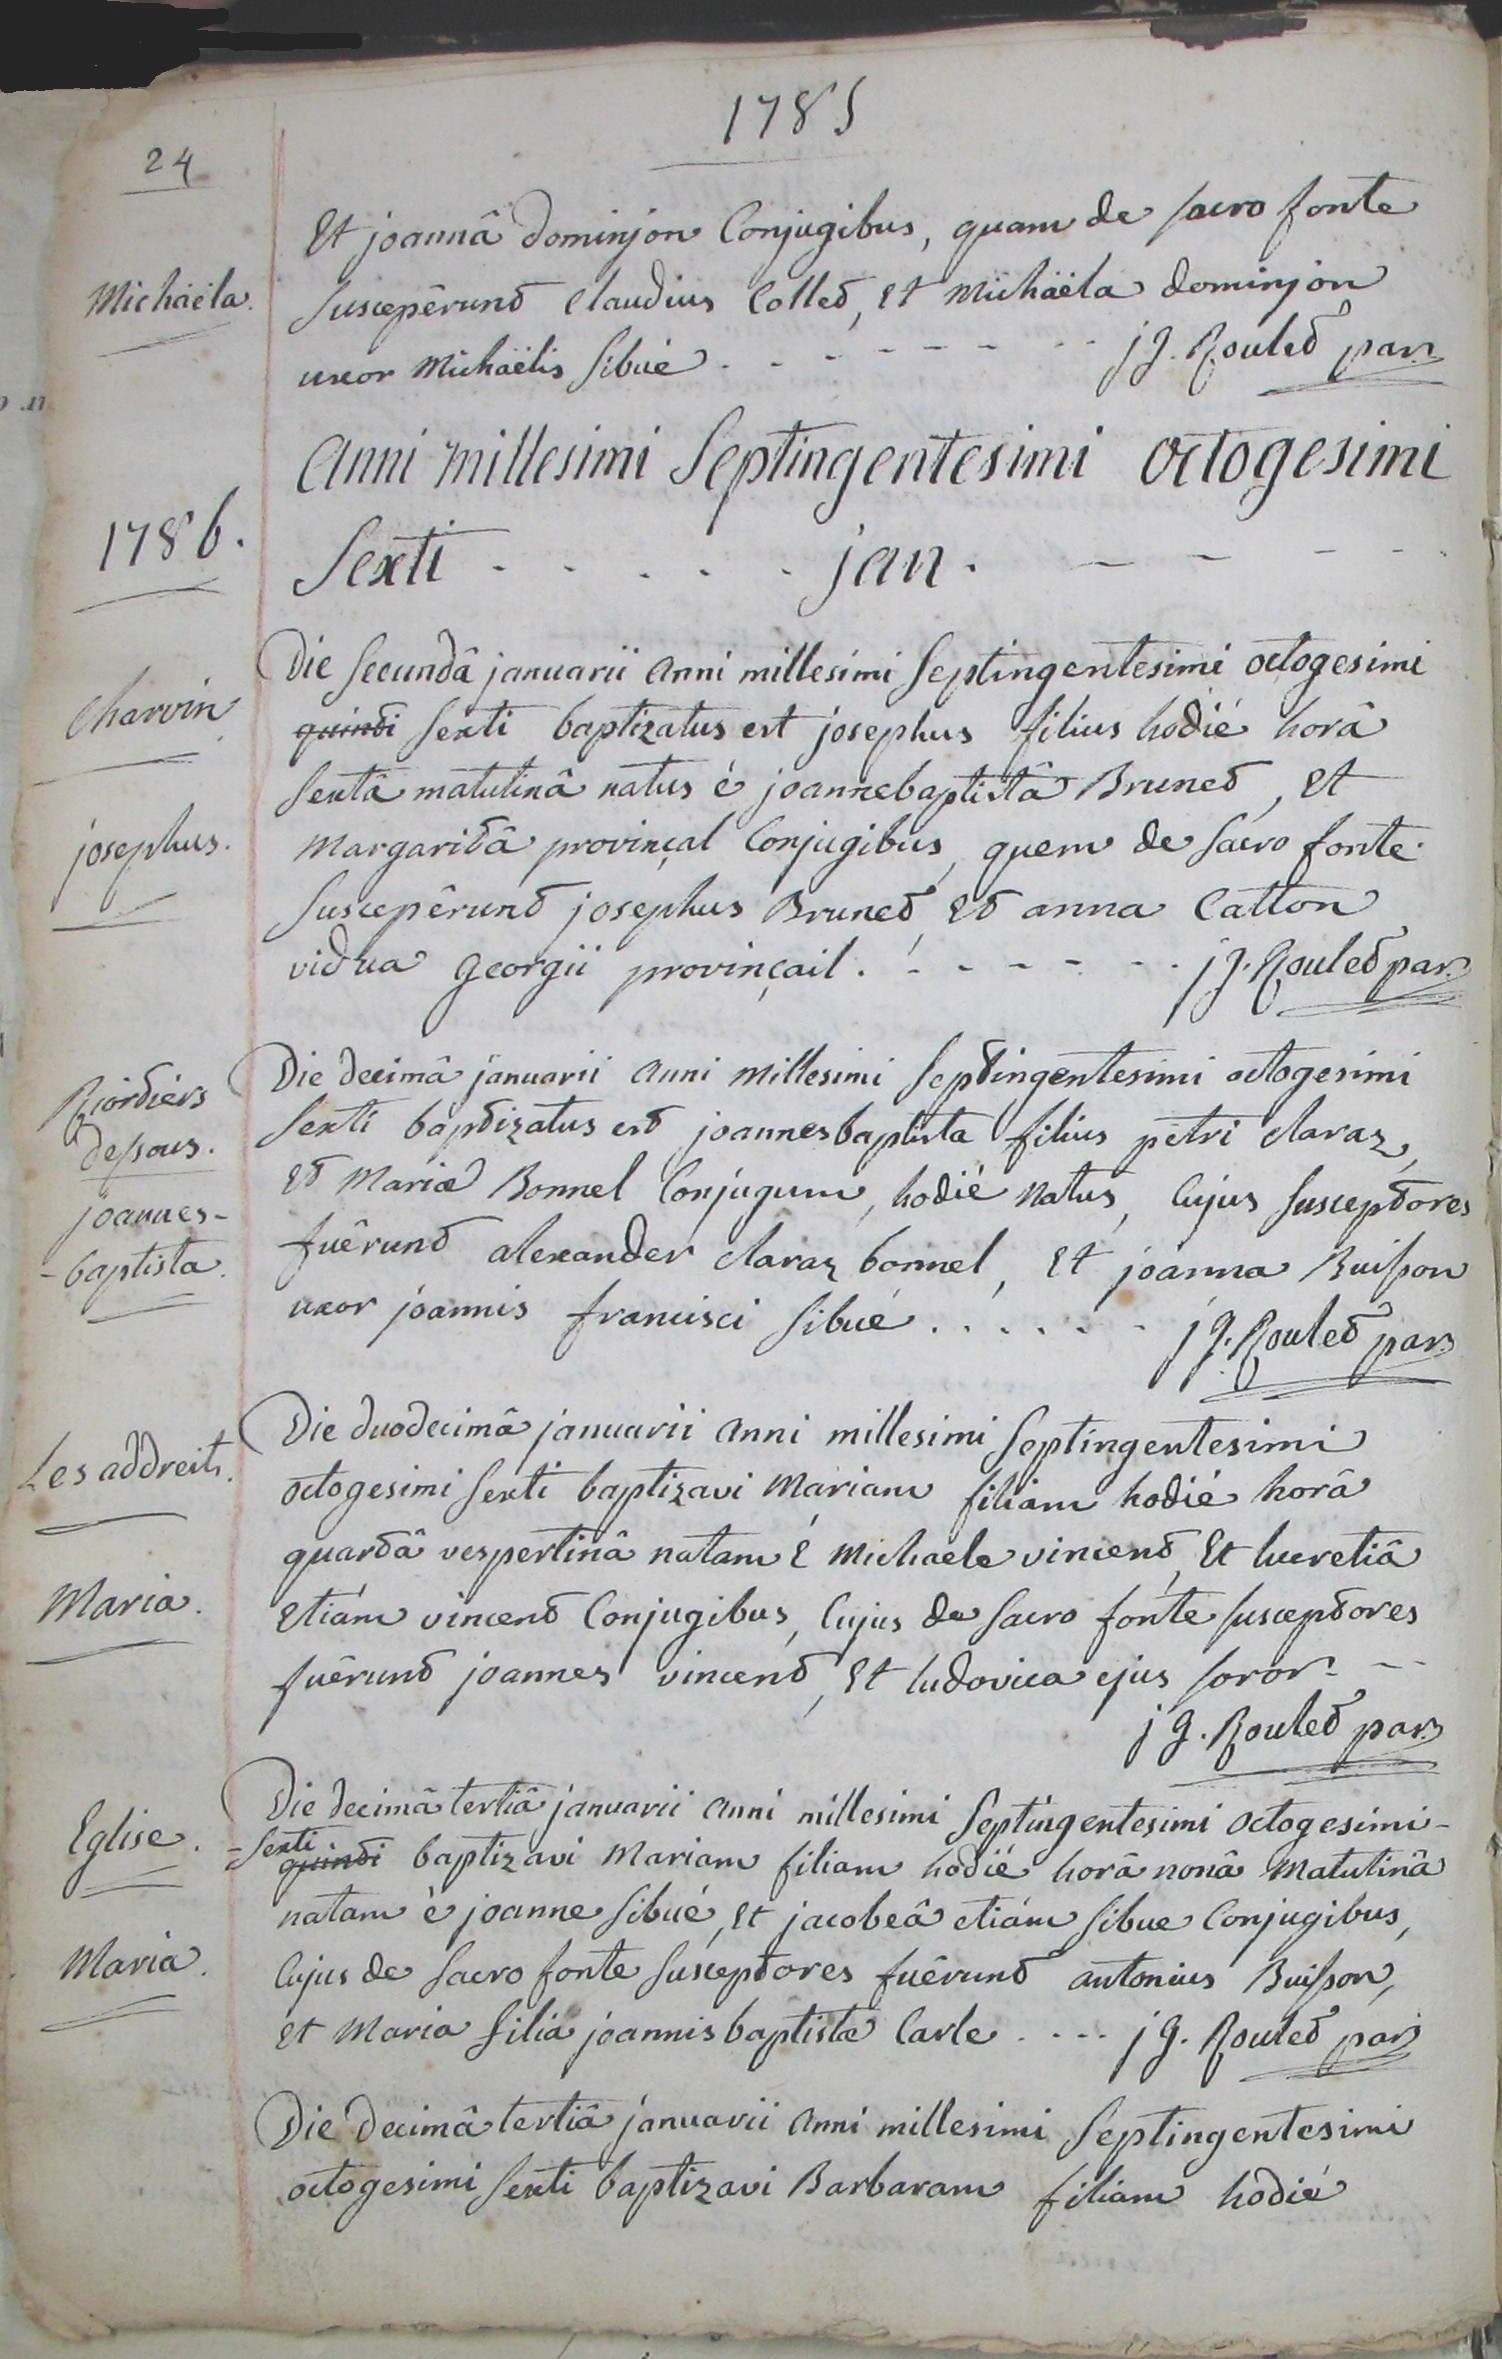 1785
24
Et joannâ dominjon Conjugibus, quam de sacro fonte
Michaëla.
susceperunt Claudius Collet, Et Michaëla dominjon
uxor Michaëlis sibué . - - - - - - - j g. Roulet par.
Anni millesimi septingentesimi octogesimi
1786.
Sexti - - - - - jan. - - - -
Die secundâ januarii anni millesimi septingentesimi octogesimi
Charvin
quinti sexti baptizatus est josephus filius hodié horâ
sextâ matutinâ natus è joannebaptistâ Brunet, Et
josephus.
Margaritâ provinçal Conjugibus, quem de sacro fonte
suscepêrunt josephus Brunet, Et anna Catton
vidua georgii provinçail. - - - - - - j g. Roulet par.
Die decimâ januarii anni millesimi septingentesimi octogesimi
Rjordiers
dessous.
sexti baptizatus est joannesbaptista filius petri claraz,
Et Mariæ Bonnel Conjugum, hodié natus, Cujus susceptores
joannes-
-baptista.
fuêrunt alexander claraz bonnel, Et joanna Buisson
uxor joannis francisci sibué . . . . . - j g. Roulet par.
Die duodecimâ januarii anni millesimi septingentesimi
Les addreits.
octogesimi sexti baptizavi Mariam filiam hodié horâ
quartâ vespertinâ natam é Michaele vincent, Et lucretiâ
Maria.
Etiám vincent Conjugibus, Cujus de sacro fonte susceptores
fuêrunt joannes vincent, Et ludovica ejus soror - -
j g. Roulet par.
Die decimâ tertiâ januarii anni millesimi septingentesimi octogesimi-
Eglise.
-sexti
quinti baptizavi Mariam filiam hodié horâ nonâ Matutinâ
natam è joanne sibué, Et jacobeâ etiám sibue Conjugibus,
Maria.
Cujus de sacro fonte susceptores fuêrunt antonius Buisson,
Et Maria filia joannis baptistæ Carle - - - - j g. Roulet par.
Die decimâ tertiâ januarii anni millesimi septingentesimi
octogesimi sexti baptizavi Barbaram filiam hodié